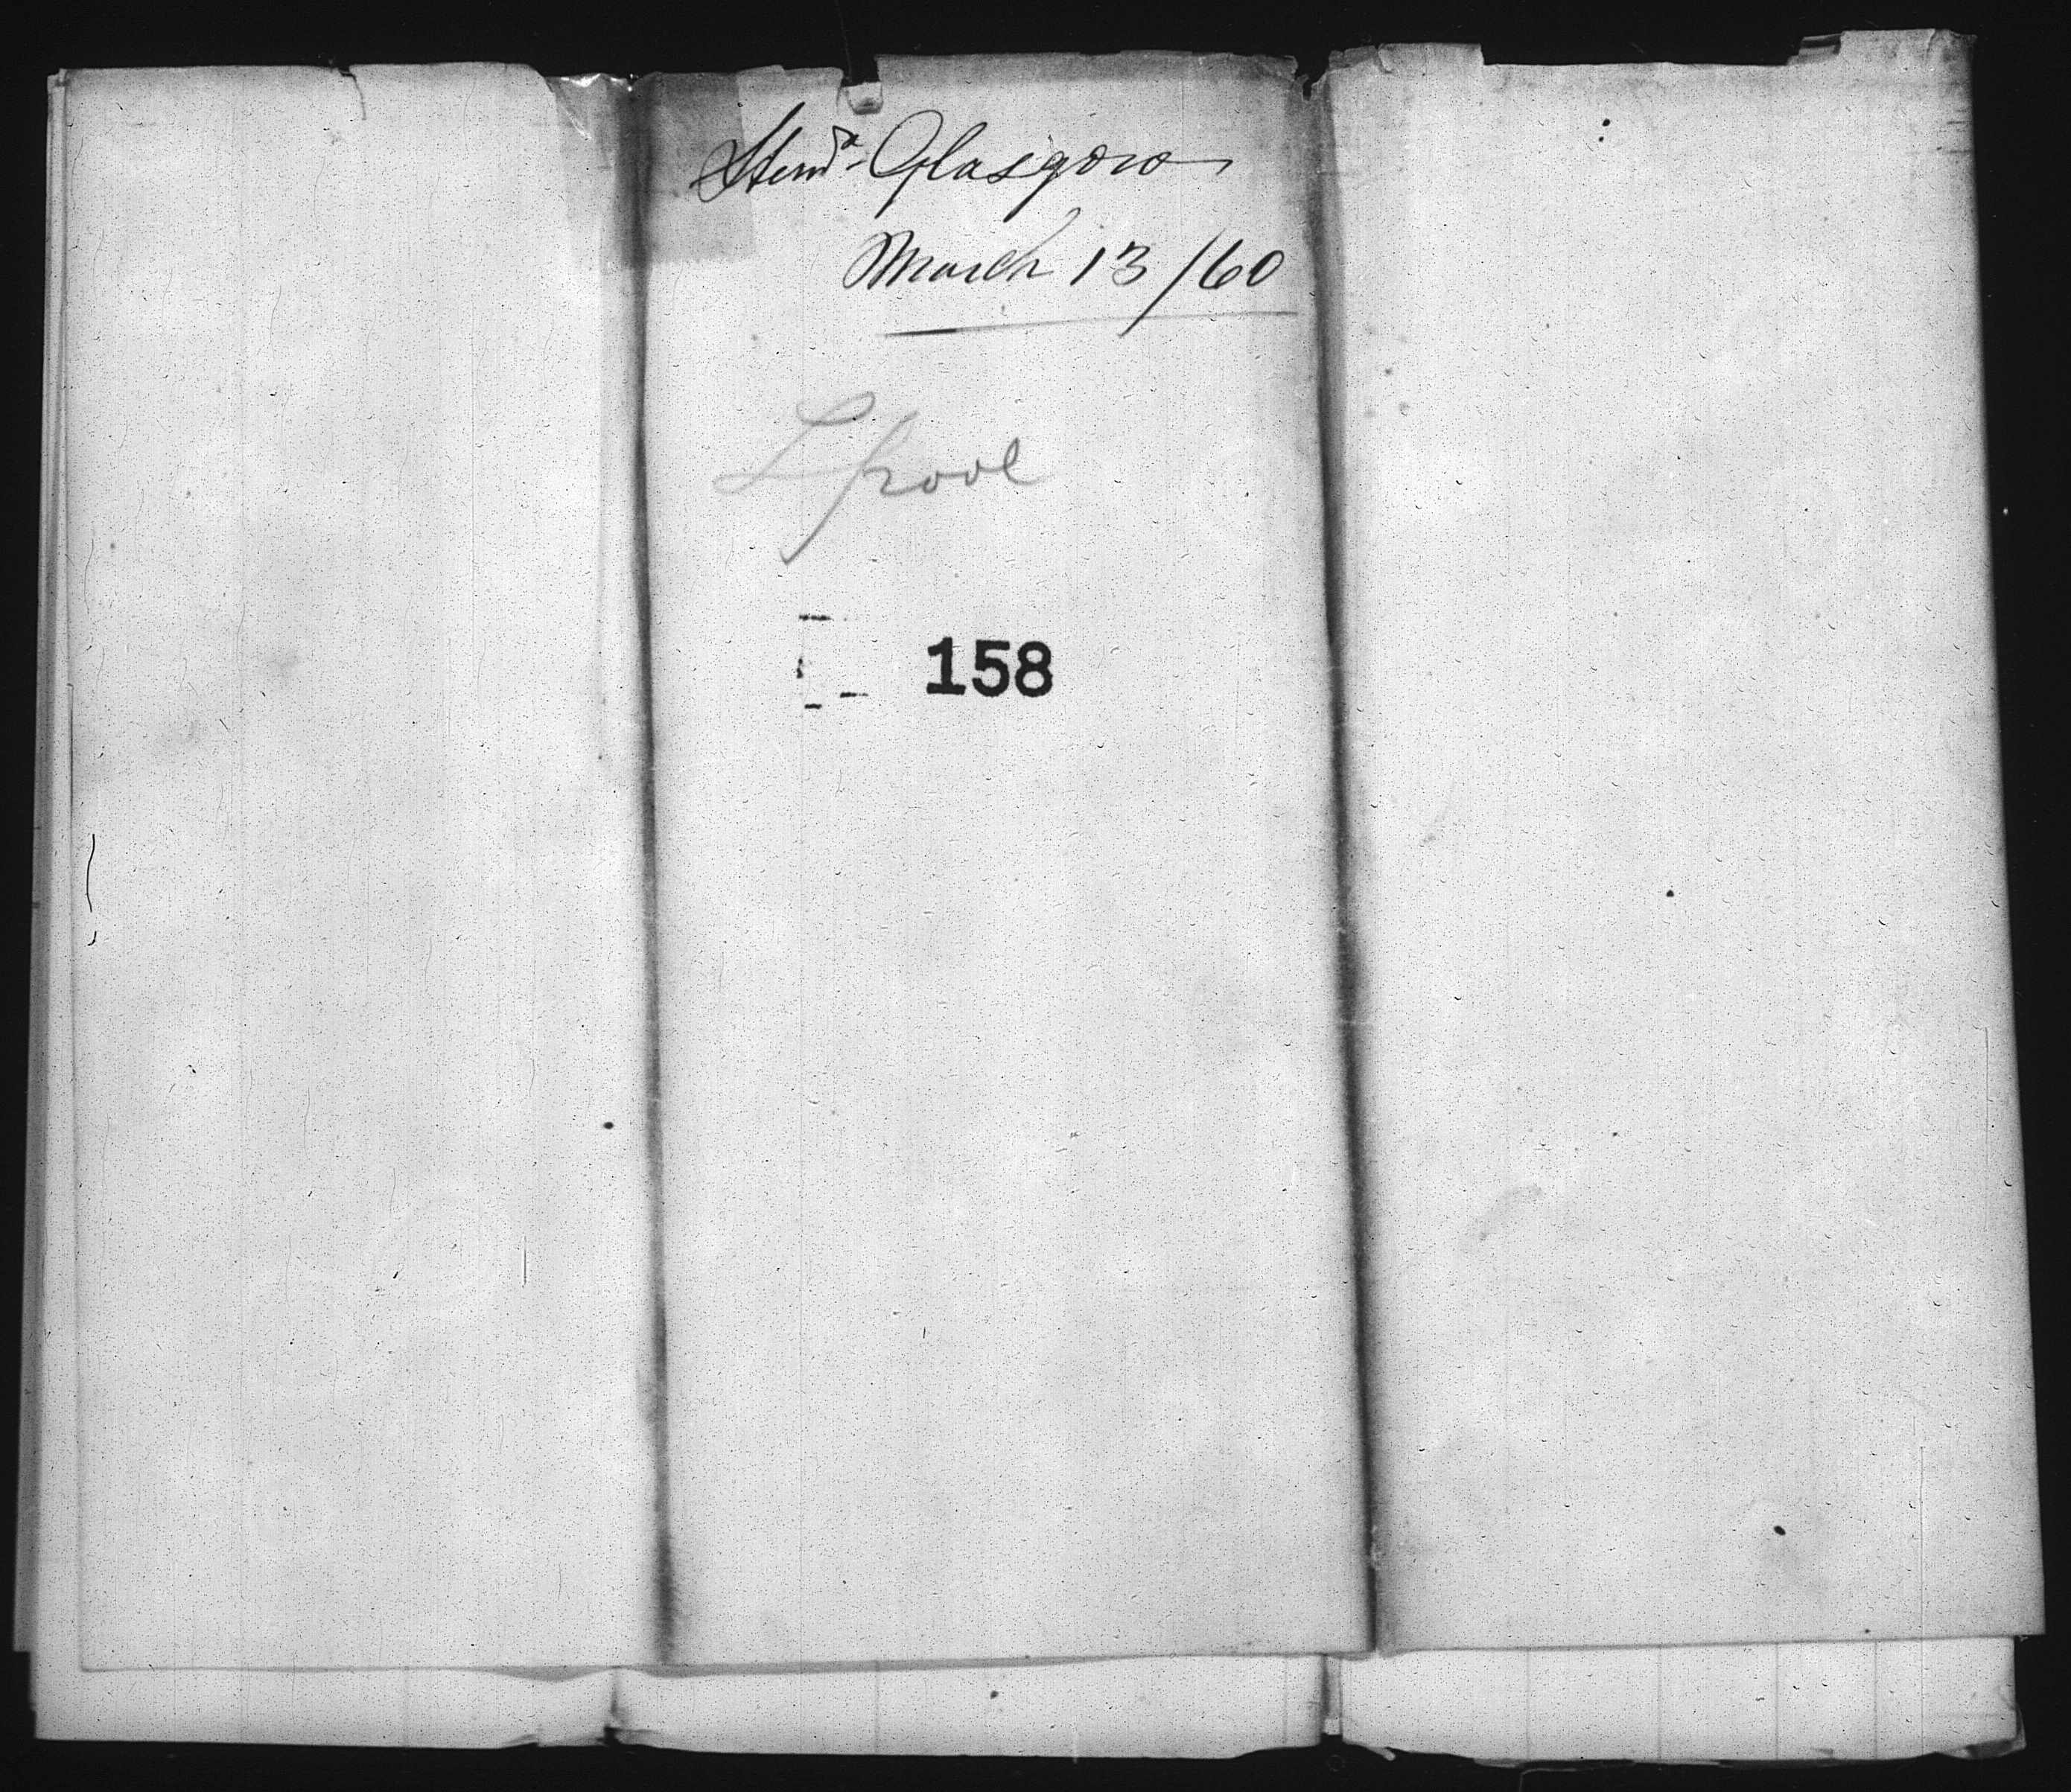 Stmr Glasgow
March 13/60
Lpool
158